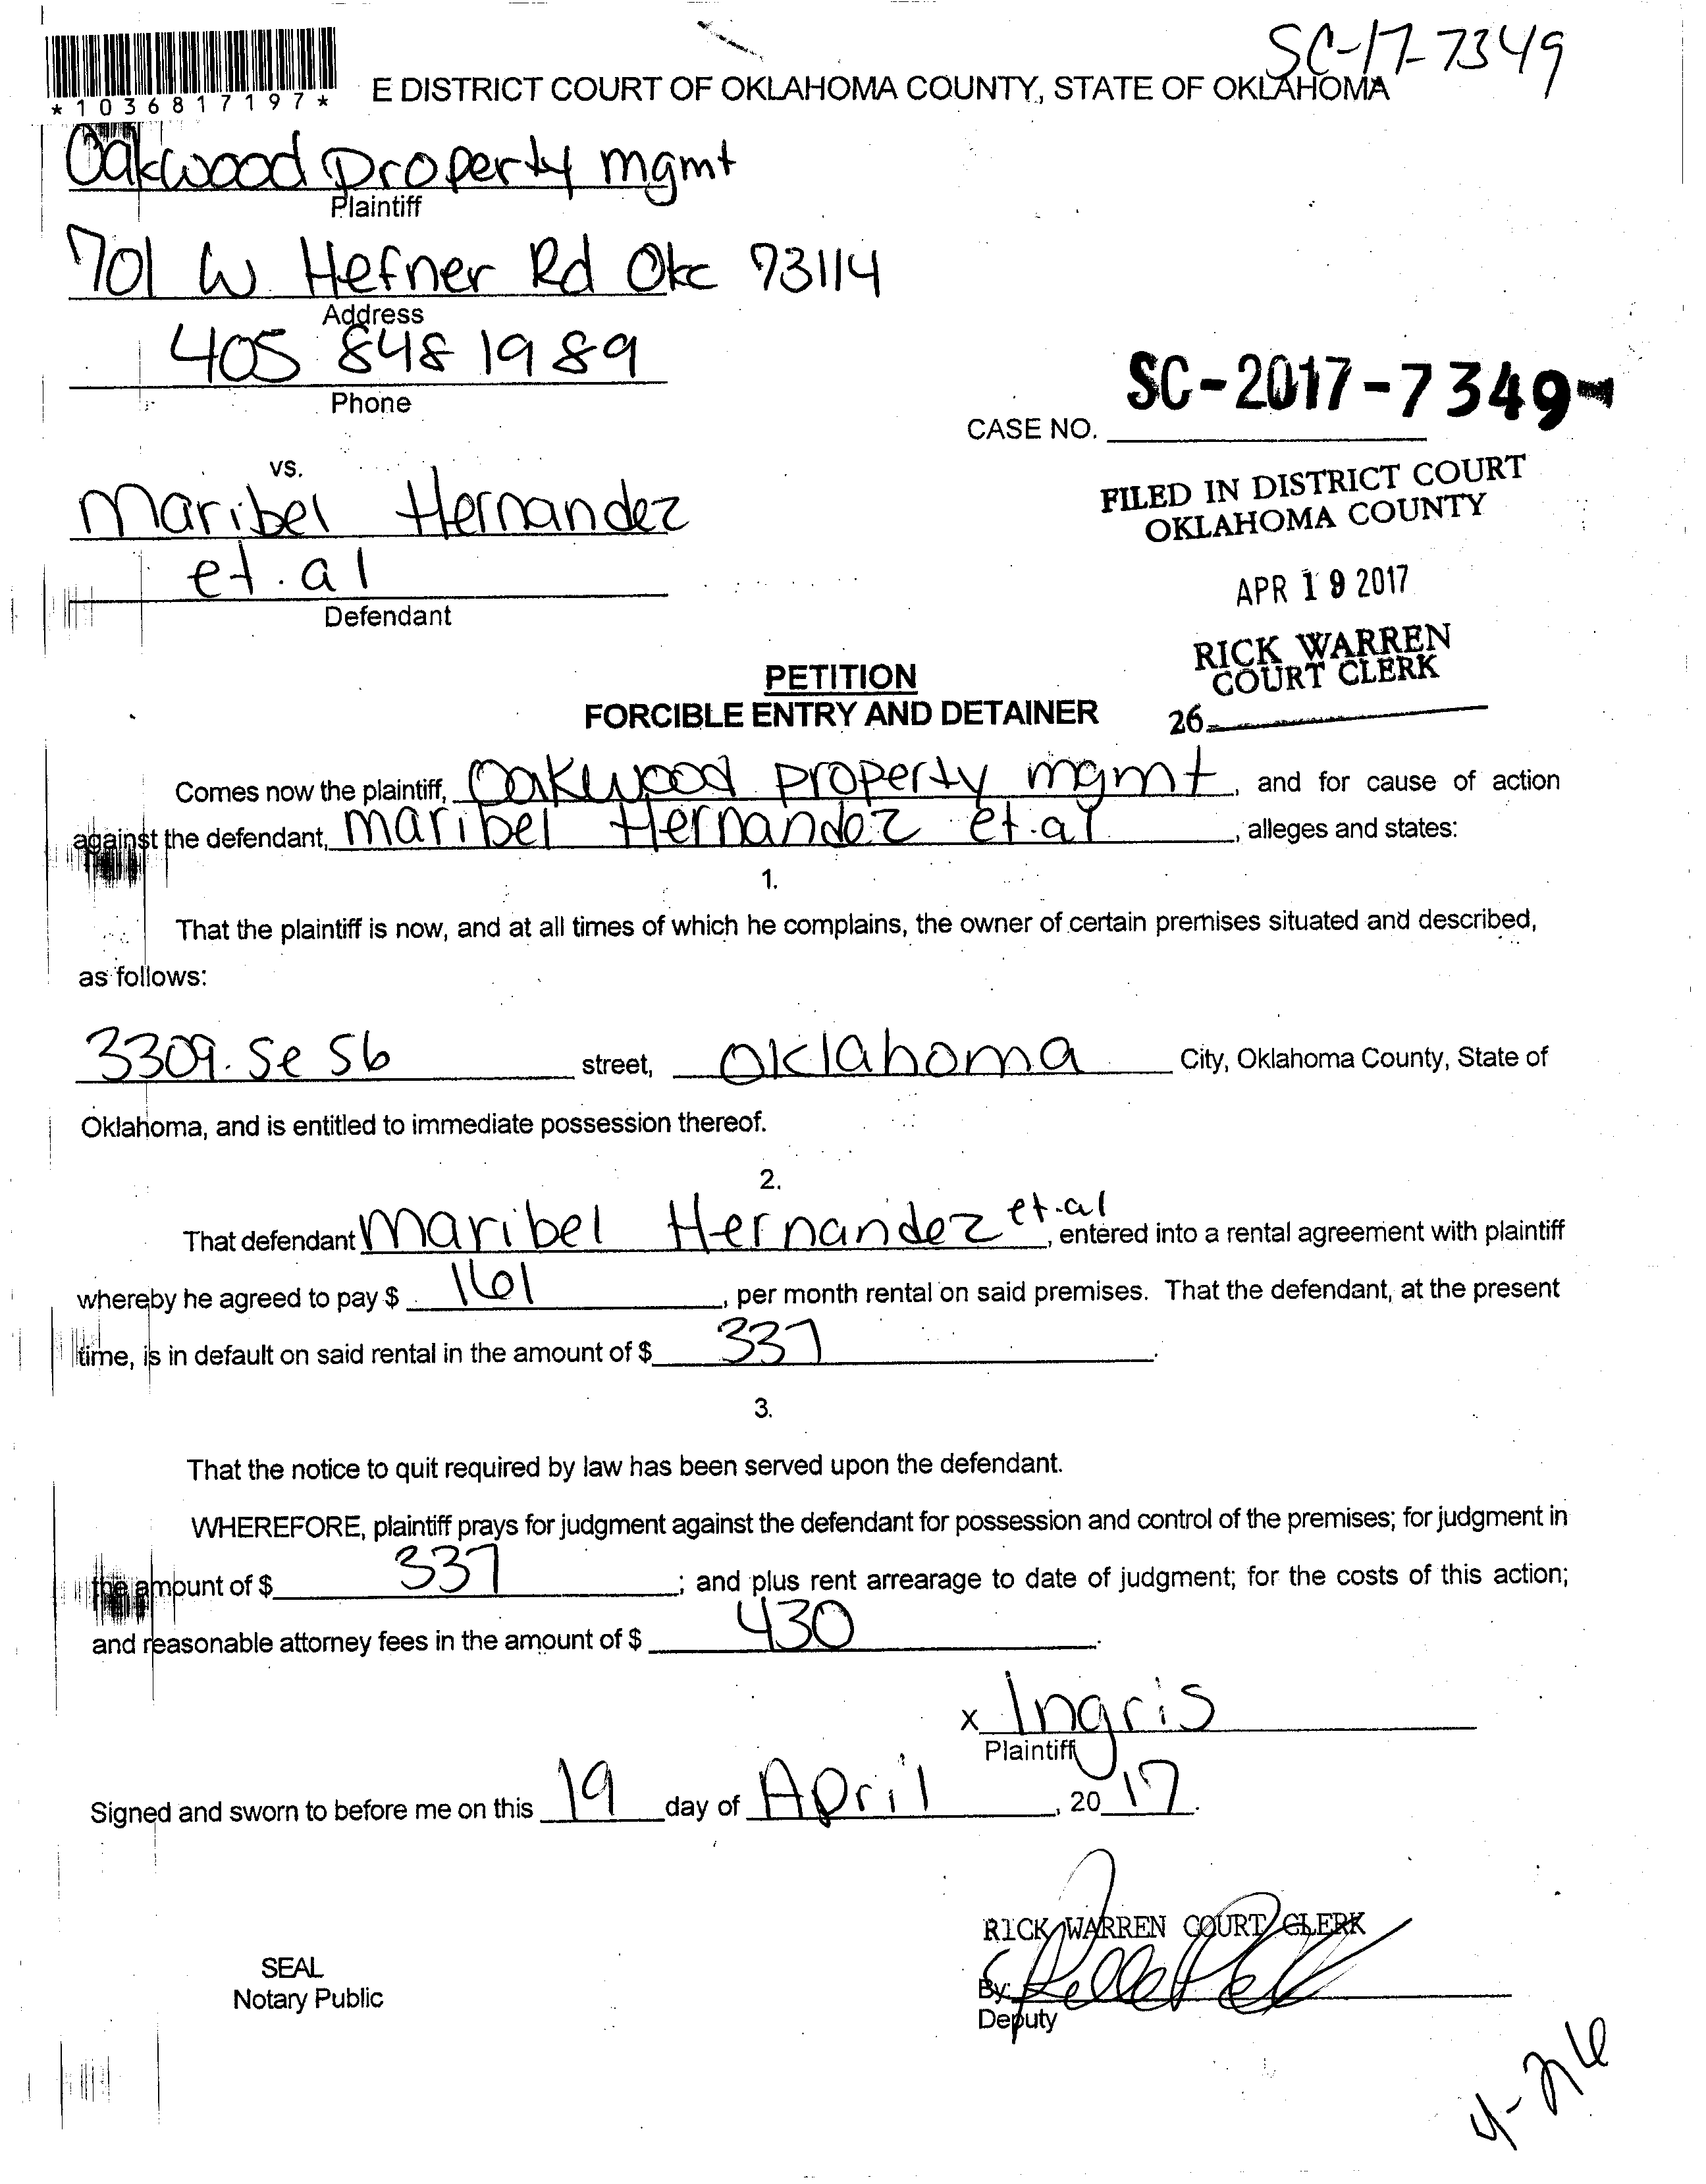 SC-17-7349
*1036817197*
E DISTRICT COURT OF OKLAHOMA COUNTY, STATE OF OKLAHOMA
Oakwood Property mgmt
Plaintiff
701 W Hefner Rd Okc 73114
Address
405 848 1989
Phone
CASE NO. SC-2017-7349
vs.
Maribel Hernandez
et.al
Defendant
FILED IN DISTRICT COURT
OKLAHOMA COUNTY
APR 19 2017
RICK WARREN
COURT CLERK
26
PETITION
FORCIBLE ENTRY AND DETAINER
Comes now the plaintiff, Oakwood property mgmt, and for cause of action
against the defendant, maribel Hernandez et.al, alleges and states:
1.
That the plaintiff is now, and at all times of which he complains, the owner of certain premises situated and described,
as follows:
3309. Se 56 street, Oklahoma City, Oklahoma County, State of
Oklahoma, and is entitled to immediate possession thereof.
2.
That defendant maribel Hernandez et.al, entered into a rental agreement with plaintiff
whereby he agreed to pay $ 161, per month rental on said premises. That the defendant, at the present
time, is in default on said rental in the amount of $ 337.
3.
That the notice to quit required by law has been served upon the defendant.
WHEREFORE, plaintiff prays for judgment against the defendant for possession and control of the premises; for judgment in
the amount of $ 337; and plus rent arrearage to date of judgment; for the costs of this action;
and reasonable attorney fees in the amount of $ 430.
x Ingris
Plaintiff
Signed and sworn to before me on this 19 day of April, 20 17.
RICK WARREN COURT CLERK
SEAL
Notary Public
By:
Deputy
4-26